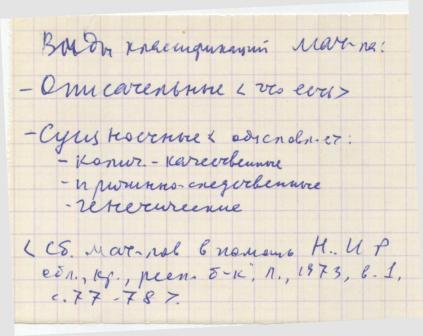 Виды классификаций мат-ла:
- Описательные < что есть >
- Сущностные <
- колич. - качественные
- причинно-следственные
- генетические
< Сб. мат-лов в помощь Н.И Р
обл., кр., респ. б-к, Л., 1973, в. 1,
с. 77-78 >.